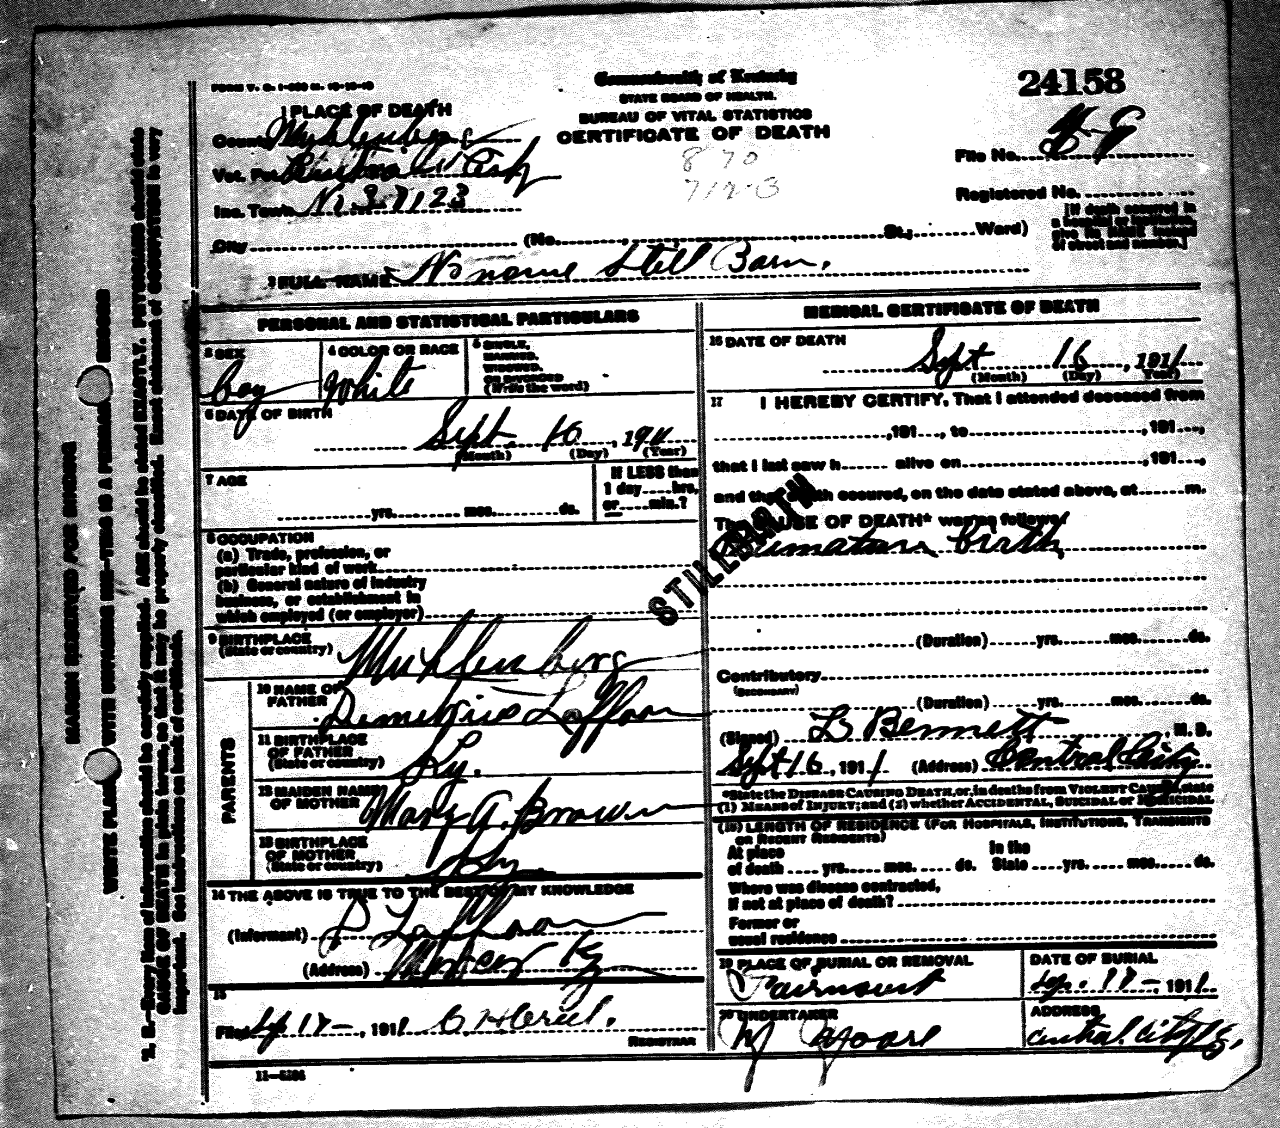 FORM V. S. 1-
Commonwealth of Kentucky
STATE BOARD OF HEALTH.
BUREAU OF VITAL STATISTICS
CERTIFICATE OF DEATH
24158
1 PLACE OF DEATH
County Muhlenberg
Vot. Pct.
Inc. Town
870
712-3
File No.
Registered No.
[If death occurred in
a hospital or institution,
give its NAME instead
of street and number.]
City (No. St.; Ward)
2 FULL NAME No name Still Born.
PERSONAL AND STATISTICAL PARTICULARS
3 SEX
boy
4 COLOR OR RACE
White
5 SINGLE,
MARRIED,
WIDOWED,
OR DIVORCED
(Write the word)
6 DATE OF BIRTH
Sept 16, 1911
(Month) (Day) (Year)
7 AGE
yrs. mos. ds.
If LESS than
1 day hrs.
or min.?
8 OCCUPATION
(a) Trade, profession, or
particular kind of work
(b) General nature of industry
business, or establishment in
which employed (or employer)
9 BIRTHPLACE
(State or country)
Muhlenberg
PARENTS
10 NAME OF
FATHER
Demetrius Laffoon
11 BIRTHPLACE
OF FATHER
(State or country)
Ky.
12 MAIDEN NAME
OF MOTHER
Mary A. Brown
13 BIRTHPLACE
OF MOTHER
(State or country)
Ky.
14 THE ABOVE IS TRUE TO THE BEST OF MY KNOWLEDGE
(Informant) D Laffoon
(Address) Mercer Ky
15
Filed Sep 17-, 1911
REGISTRAR
11-
STILLBIRTH
MEDICAL CERTIFICATE OF DEATH
16 DATE OF DEATH
Sept 16, 1911
(Month) (Day) (Year)
17 I HEREBY CERTIFY, That I attended deceased from
, 191 , to , 191 ,
that I last saw h alive on , 191 ,
and that death occured, on the date stated above, at m.
The CAUSE OF DEATH* was as follows:
Primature Birth
(Duration) yrs. mos. ds.
Contributory
(SECONDARY)
(Duration) yrs. mos. ds.
(Signed) Bennett, M. D.
Sept 16, 1911 (Address) Central City
*State the DISEASE CAUSING DEATH, or, in deaths from VIOLENT CAUSES, state
(1) MEANS OF INJURY; and (2) whether ACCIDENTAL, SUICIDAL or HOMICIDAL
(18) LENGTH OF RESIDENCE (FOR HOSPITALS, INSTITUTIONS, TRANSIENTS
OR RECENT RESIDENTS)
At place
of death yrs. mos. ds.
In the
State yrs. mos. ds.
Where was disease contracted,
If not at place of death?
Former or
usual residence
19 PLACE OF BURIAL OR REMOVAL
Fairmount
DATE OF BURIAL
Sep. 17-, 1911
20 UNDERTAKER
ADDRESS
Central City Ky.
MARGIN RESERVED FOR BINDING
WRITE PLAINLY WITH UNFADING INK—THIS IS A PERMANENT RECORD
N. B.—Every item of information should be carefully supplied. AGE should be stated EXACTLY. PHYSICIANS should state
CAUSE OF DEATH in plain terms, so that it may be properly classified. Exact statement of OCCUPATION is very
important. See instructions on back of certificate.